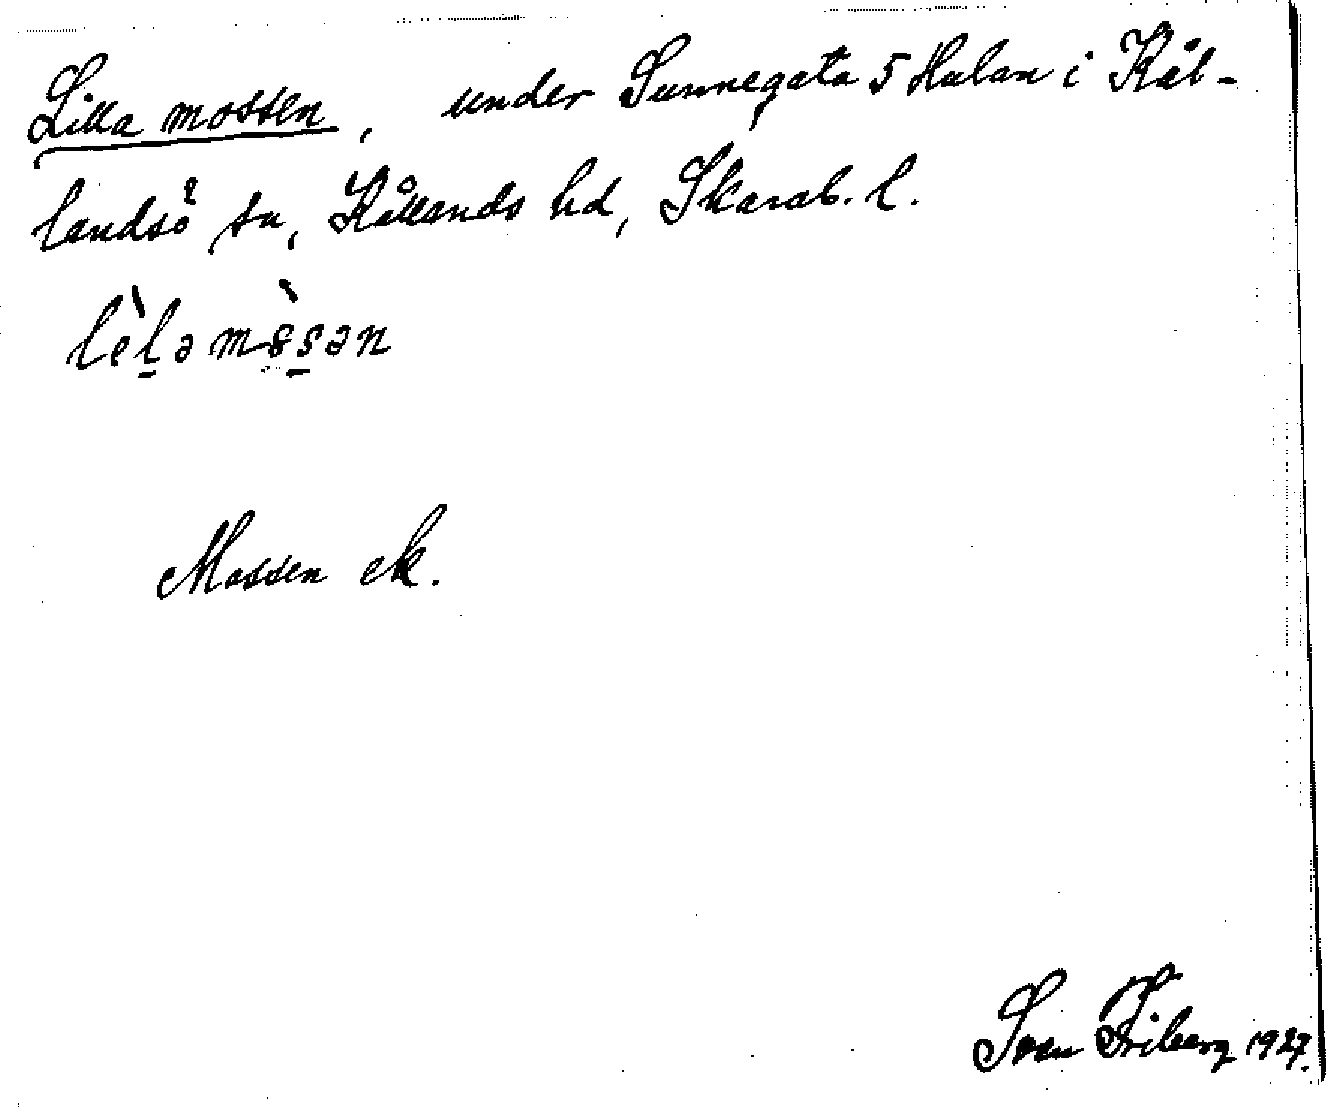 Lilla mossen, under Sunnegata 5 Halan i Kål-
landsö sn, Kållands hd, Skarab. l.
lèlə mòsən
Mossen ek.
Sven Friberg 1927.